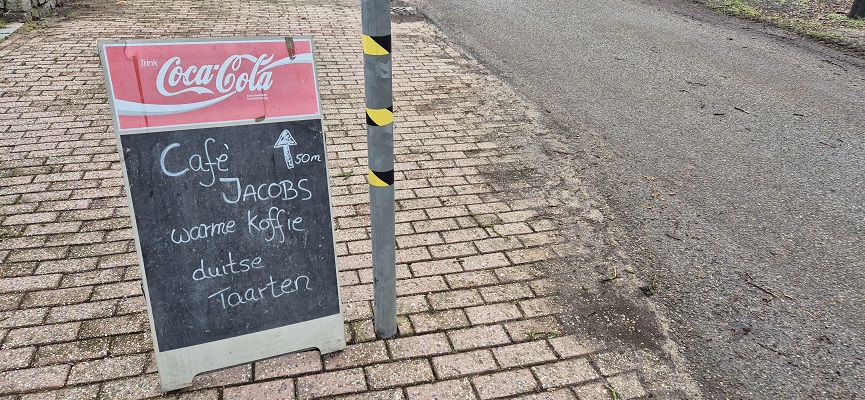 Trink
Coca-Cola
Cafè
50m
JACOBS
warme koffie
duitse
Taarten